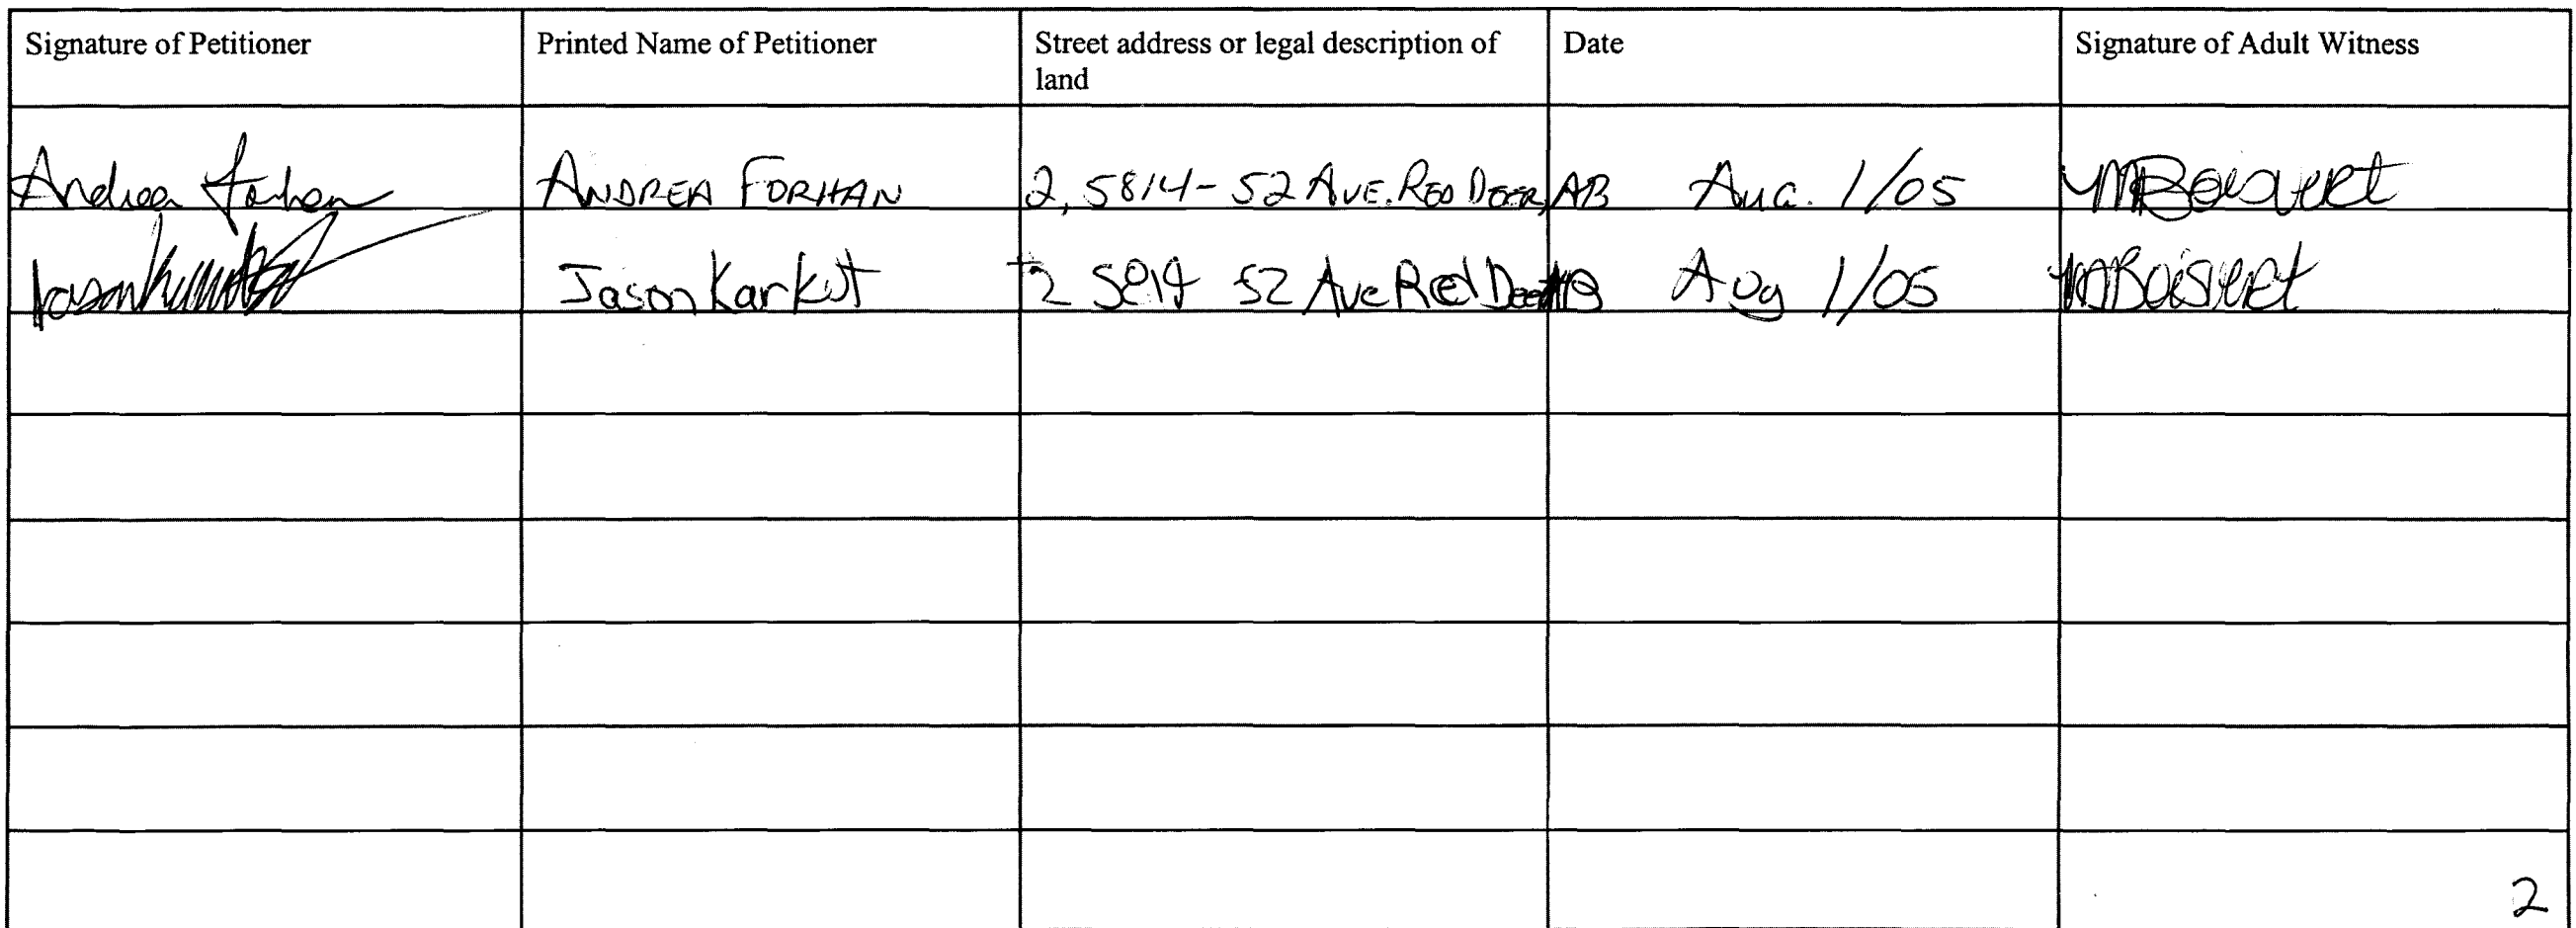 Signature of Petitioner Printed Name of Petitioner Street address or legal description of Date Signature of Adult Witness
land
Andrea Forhan ANDREA FORHAN 2, 5814-52 AVE. RED DEER, AB Aug. 1/05 MBoisvert
Jason Jason Karkut 2 5814 52 Ave Red Deer AB Aug 1/05 MBoisvert
2